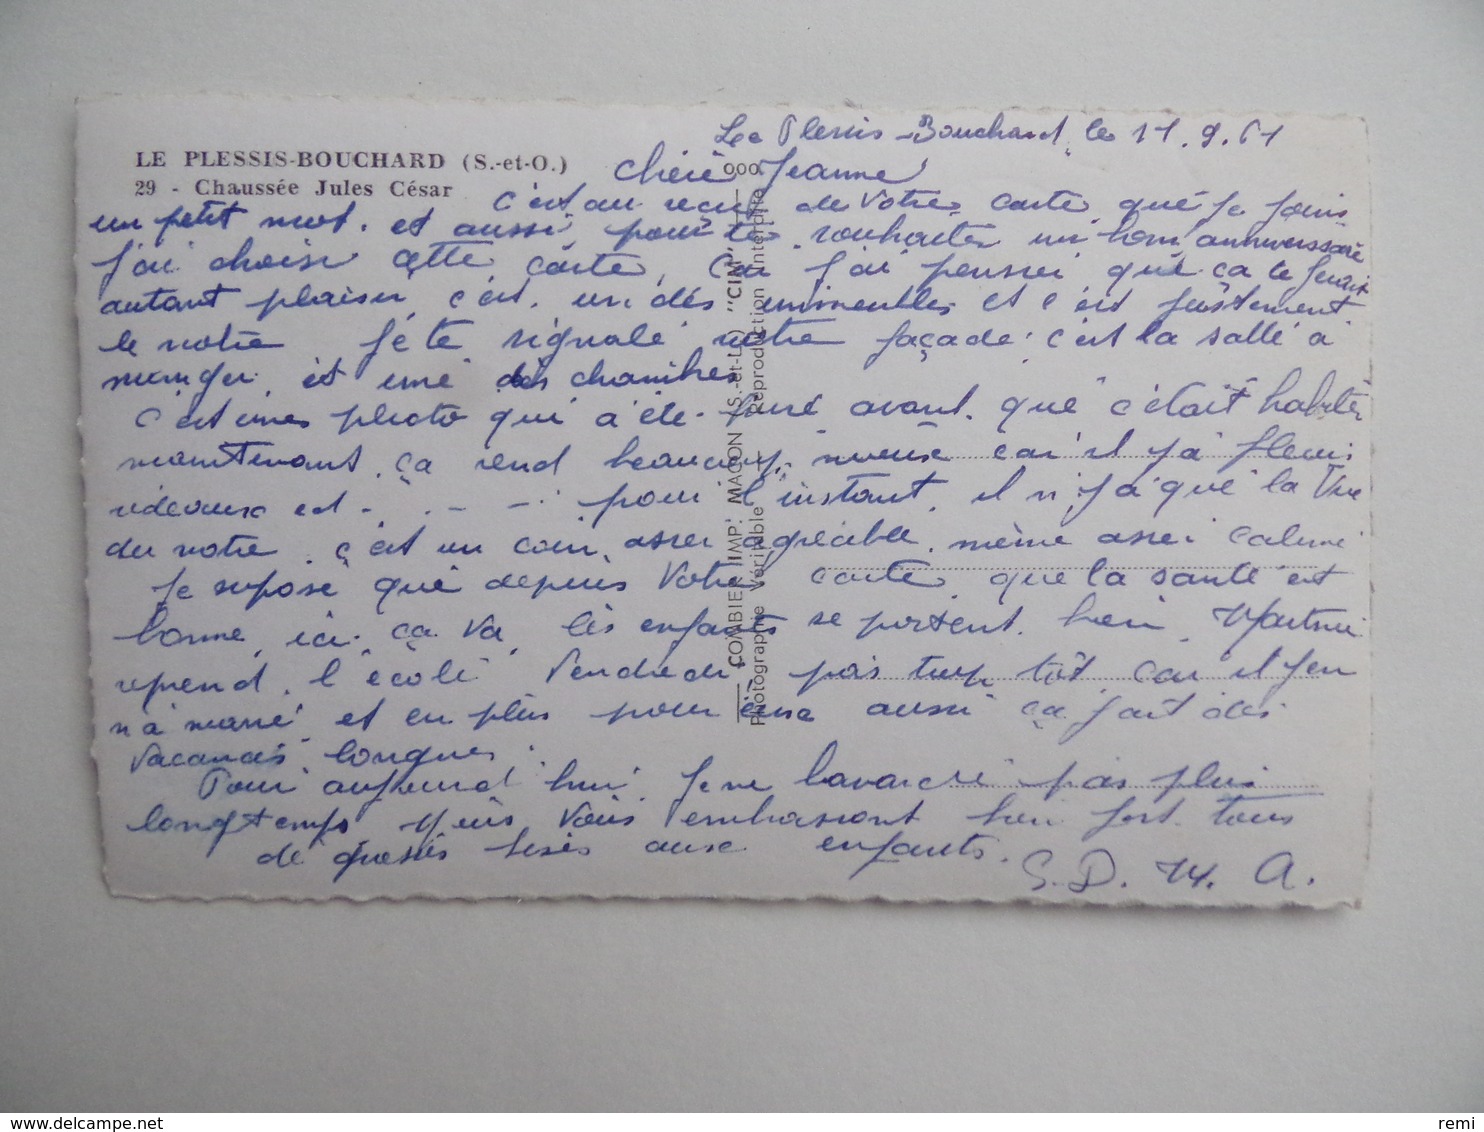 LE PLESSIS-BOUCHARD (S.-et-O.)
29 - Chaussée Jules César
Le Plessis-Bouchard, le 11.9.61
Chère Jeanne
C'est au recu de votre carte que je joins
un petit mot. et aussi pour te souhaiter un bon anniversaire
J'ai choisi cette carte, car j'ai penser que ça te ferait
autant plaisir, c'est un des immeubles et c'est justement
le notre je te signale notre façade: c'est la salle à
manger et une des chambres
C'est une photo qui a été avant que c'était habiter
maintenant ça rend beaucoup mieux car il y a fleurs
rideaux et - . - - . pour l'instant, il n'y a que la vue
du notre, c'est un coin asser agréable, même asser calme
Je supose que depuis votre carte que la santé est
bonne, ici ça va, les enfants se portent bien, Martine
reprend l'école Vendredi pas trop tôt car il j'en
n'a marre et en plus pour eux aussi ça fait des
vacances longues.
Pour aujourd'hui je ne bavarde pas plus
longtemps Vous embrassons bien fort tous
de grosses bises aux enfants.
S. D. M. A.
COMBIER IMP. MACON (S.-et-L.) "CIM"
Photographie Véritable - Reproduction Interdite
delcampe.net
remi